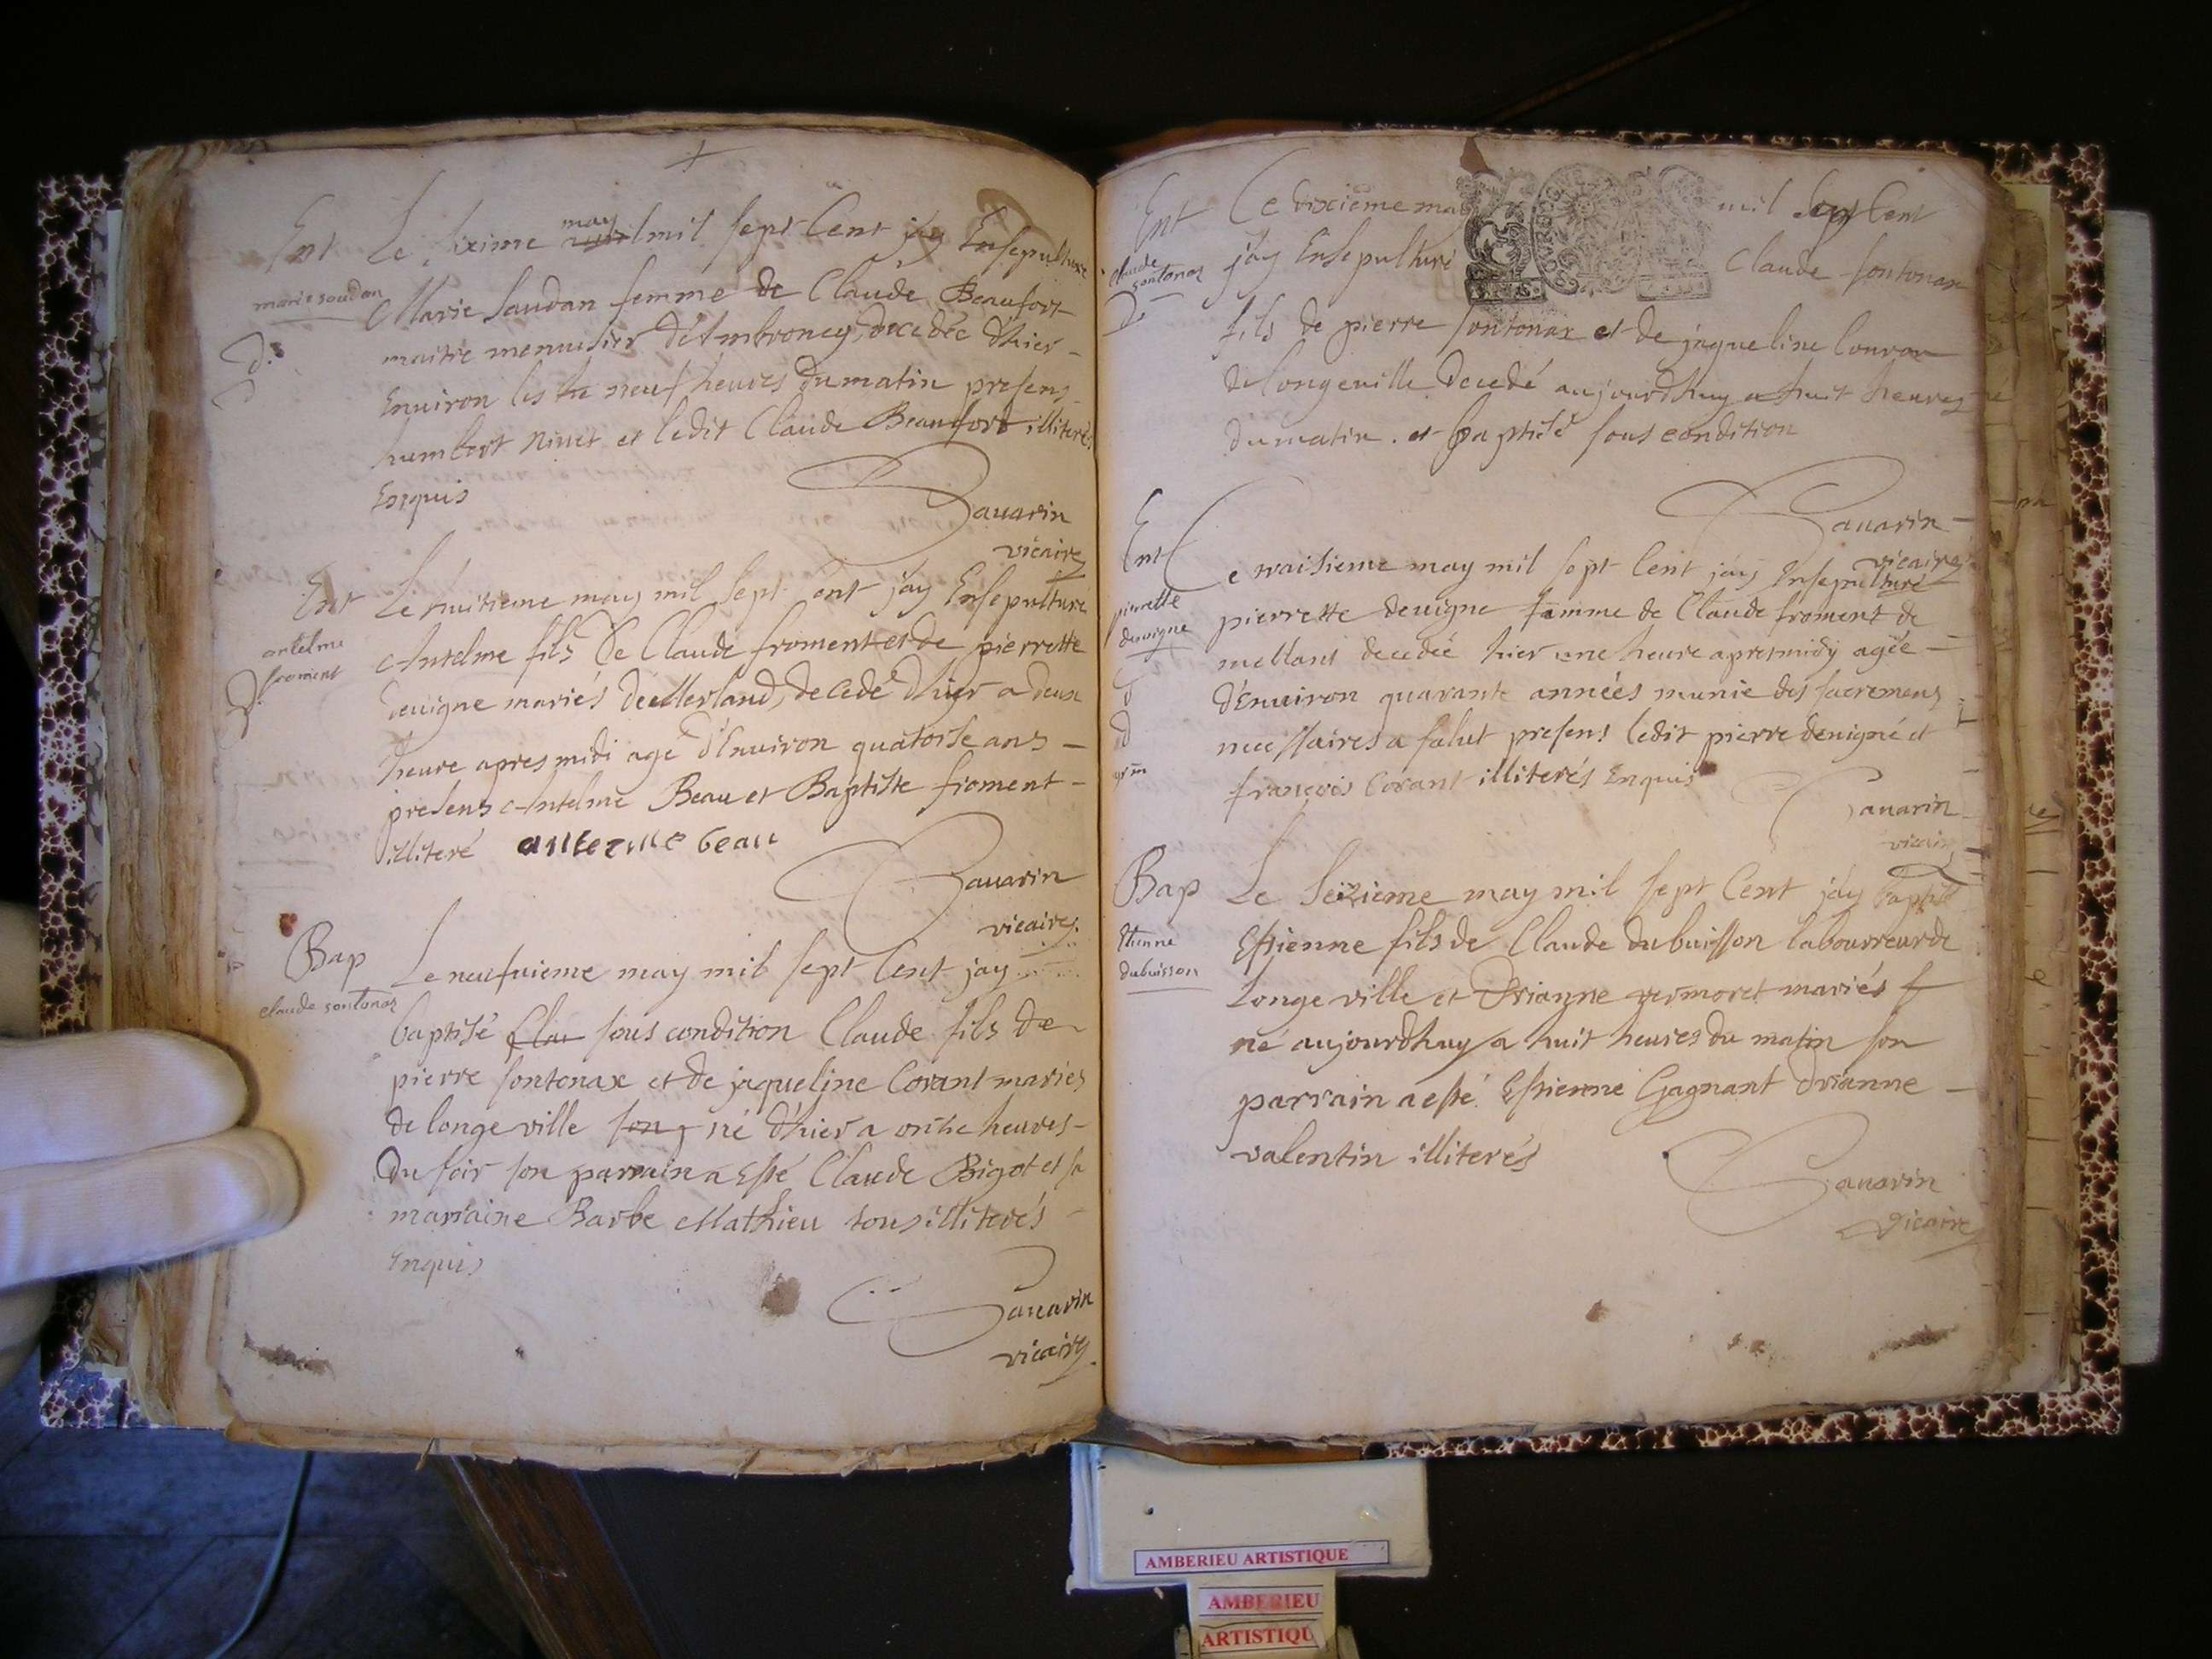 Ent Le sixime may mil sept Cent jay Ensepulturé
marie saudan
Marie Saudan femme de Claude Beaufort
maitre menuisier d'Ambroney, decedée d'hier
Environ les neuf heures du matin presens
humbert ninet et ledit Claude Beaufort illiterés
Enquis
Sauarin
vicaire
Ent Le huitieme may mil sept Cent jay Ensepulturé
antelme
froment
Antelme fils de Claude froment et de pierrette
deuigne mariés de Merland, decedé d'hier a deux
heure apres midi agé d'Enuiron quatorse ans
presens Antelme Beau et Baptiste froment
illiteré antelme beau
Sauarin
vicaire
Bap Le neufuieme may mil sept Cent jay
claude sontonax
baptisé Clau sous condition Claude fils de
pierre sontonax et de jaqueline Corant mariés
de longe ville son né d'hier a onse heures
du soir son parrain a Esté Claude Bigot et sa
marraine Barbe Mathieu tous illiterés
Enquis
Sauarin
vicaire
Ent Le dixieme may mil sept Cent
claude
sontonax
jay Ensepulturé Claude sontonax
fils de pierre sontonax et de jaqueline
de longeuille decedé aujourdhuy a huit heures
du matin . et baptisé sous condition
Sauarin
vicaire
Ent Le traisieme may mil sept Cent jay Ensepulturé
pierrette
deuigne
pierrette deuigne famme de Claude froment de
decedée hier une heure apres midy agée
d'Enuiron quarante années munie des sacremens
necessaires a salut presens ledit pierre deuigne et
françois Corant illiterés Enquis
Sauarin
vicaire
Bap Le Seizieme may mil sept Cent jay baptisé
Etienne
dubuisson
Estienne fils de Claude dubuisson labourreur de
Longe ville et Drianne vermoret mariés
né aujourdhuy a huit heures du matin son
parrain a esté Estienne Gagnant Drianne
valentin illiterés
Sauarin
vicaire
AMBERIEU ARTISTIQUE
AMBERIEU
ARTISTIQU